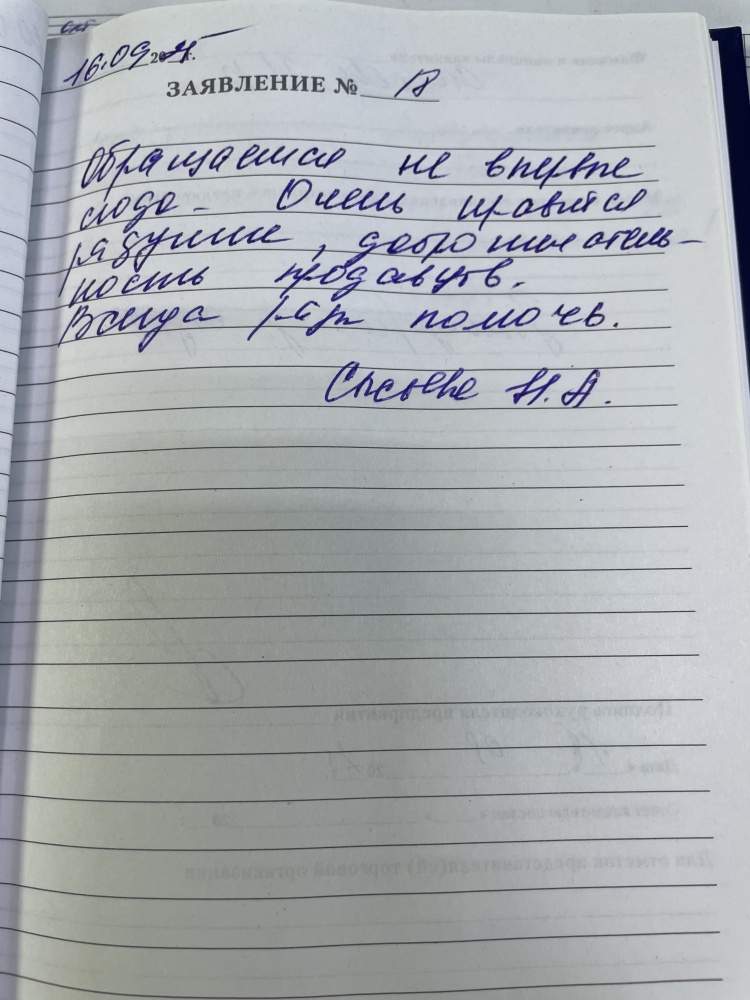 16.09 20 г.
ЗАЯВЛЕНИЕ № 18
Обращаемся не впервые
сюда. Очень нравится
радушие, доброжелатель-
ность продавцов.
Всегда рады помочь.
Н.А.